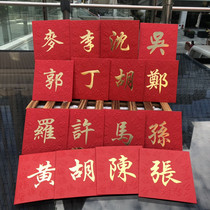 麥李沈吳
郭丁胡鄭
羅許馬孫
黃胡陳張